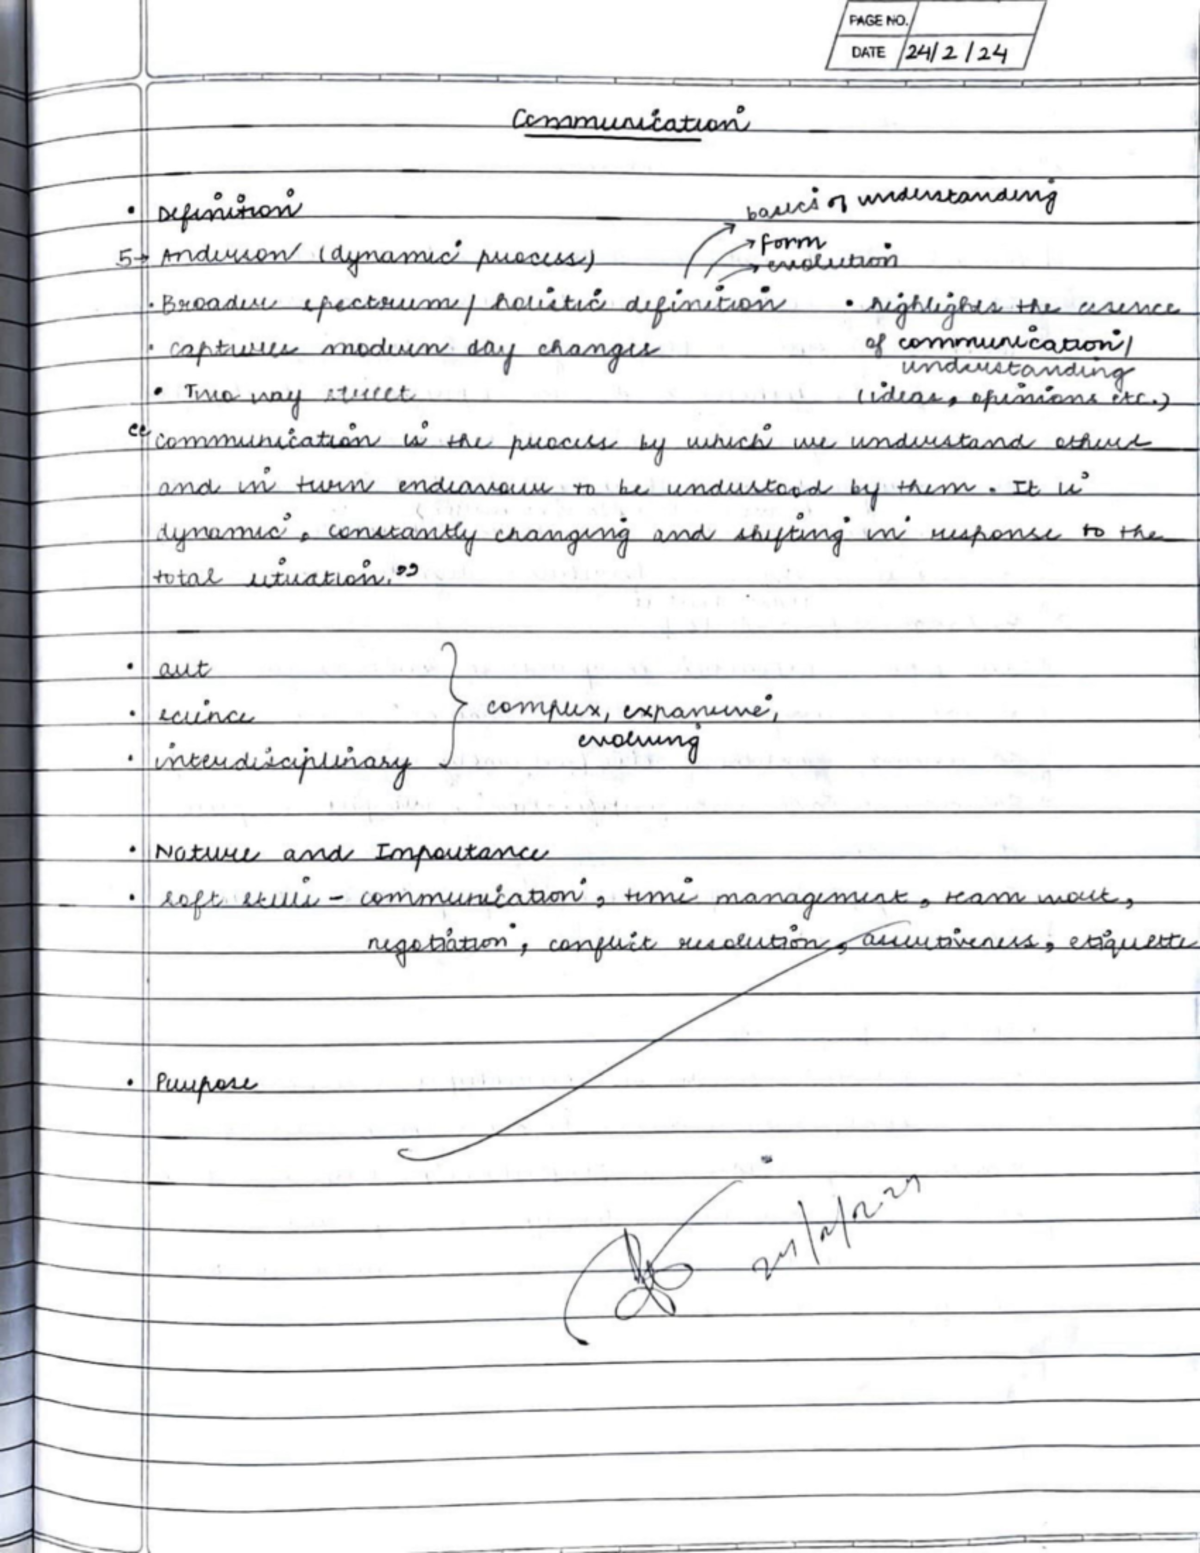 PAGE NO.
DATE 24/2/24
Communication
• Definition
basics of understanding
5→ Anderson (dynamic process)
→ form
→ evolution
• Broader spectrum / holistic definition
• highlights the esence
• captures modern day changes
of communication/
understanding
• Two way street
(ideas, opinions etc.)
"communication is the process by which we understand others
and in turn endeavour to be understood by them. It is
dynamic, constantly changing and shifting in response to the
total situation."
• art
• science
complex, expansive,
evolving
• interdisciplinary
• Nature and Importance
• soft skills – communication, time management, team work,
negotiation, conflict resolution, assertiveness, etiquette
• Purpose